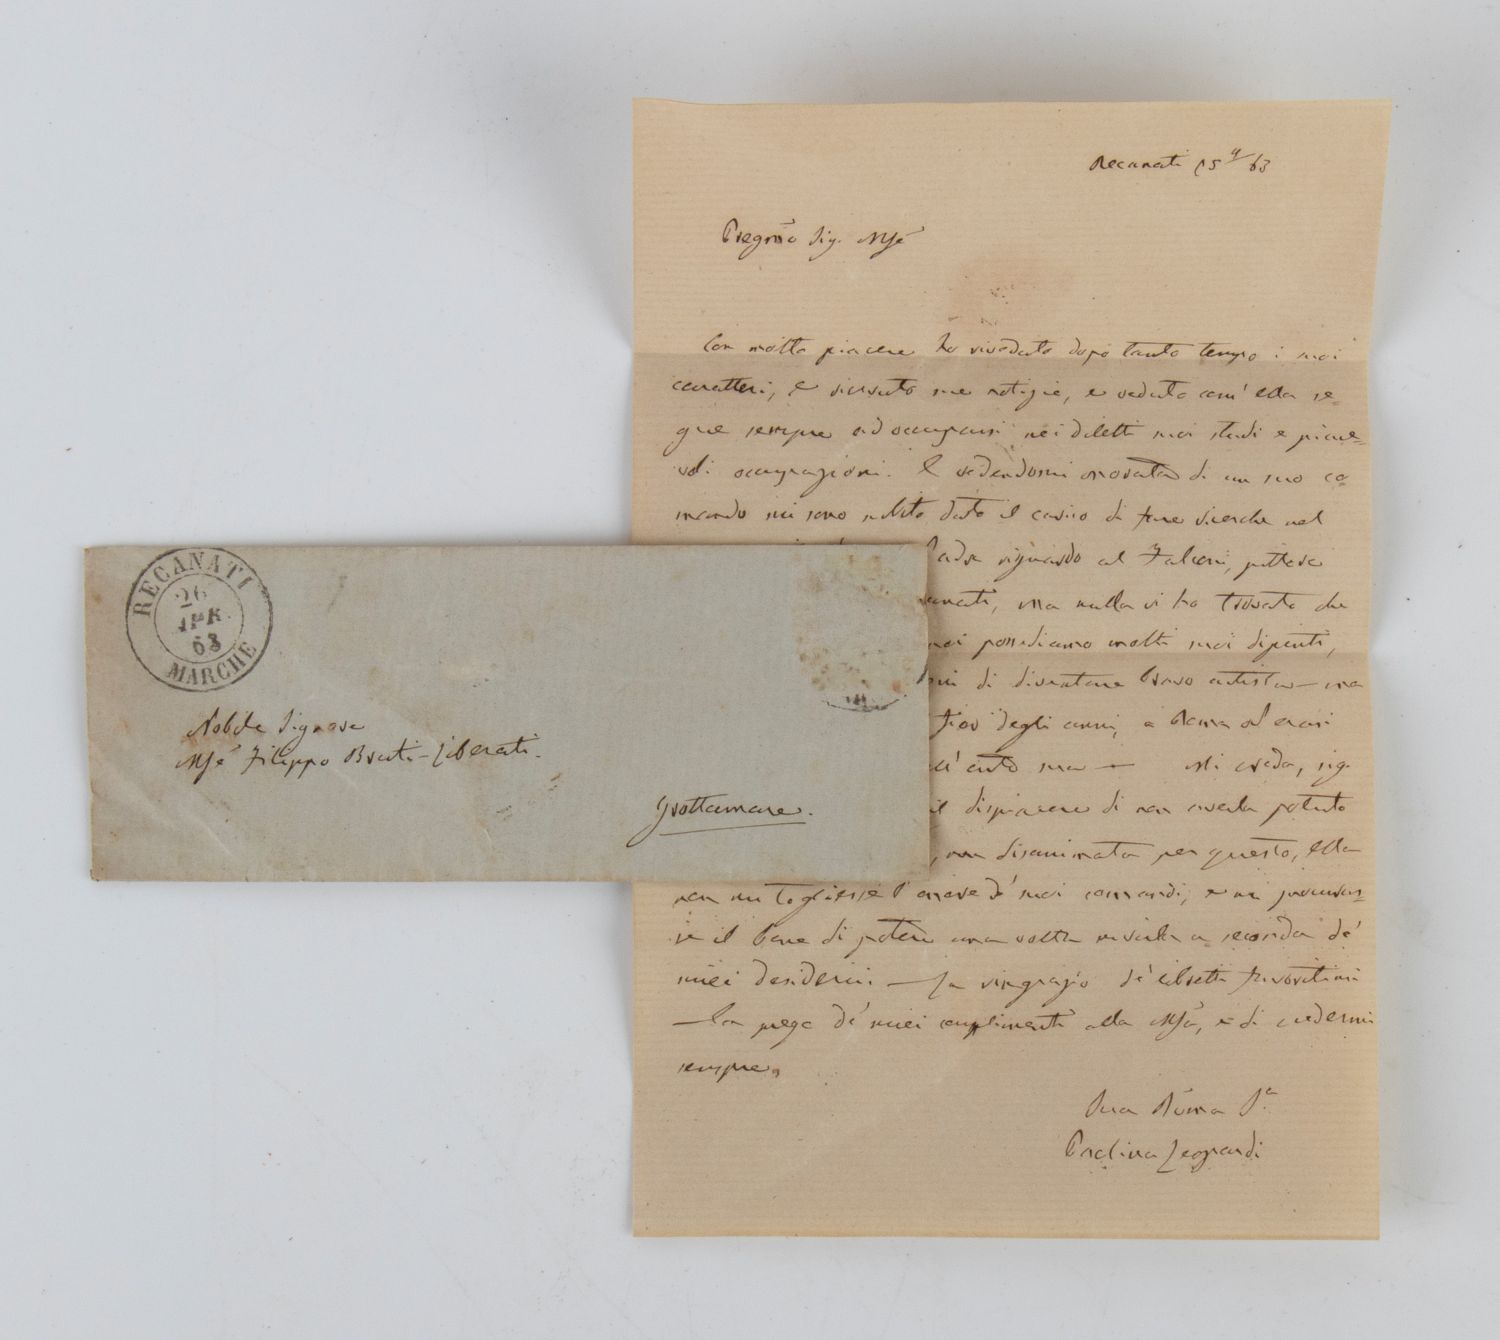 RECANATI
26
APR
63
MARCHE
Nobile Signore
Mse Filippo Bruti-Liberati.
Grottamare.
Recanati 25 63
Pregmo Sig. Mse
Con molto piacere ho riveduto dopo tanto tempo i suoi
caratteri, e ricevuto sue notizie, e veduto com' ella se-
gue sempre ad occuparsi nei diletti suoi studi e piace-
voli occupazioni. E vedendomi onorata di un suo co-
mando mi sono subito dato il carico di fare ricerche nel
Padre riguardo al Falconi, pittore
ma nulla vi ho trovato che
noi possediamo molti suoi dipinti,
di diventare bravo artista - ma
fior degli anni, a Roma ed erasi
ma — Mi creda, sig.
il dispiacere di non averla potuto
disanimata per questo, ella
non mi togliesse l'onore de' suoi comandi, e mi procuras-
se il bene di poterla una volta servirla a seconda de'
miei desiderii — La ringrazio de' libretti favoritimi
— La prego de' miei complimenti alla Msa, e di credermi
sempre
Sua Dma Sa
Paolina Leopardi